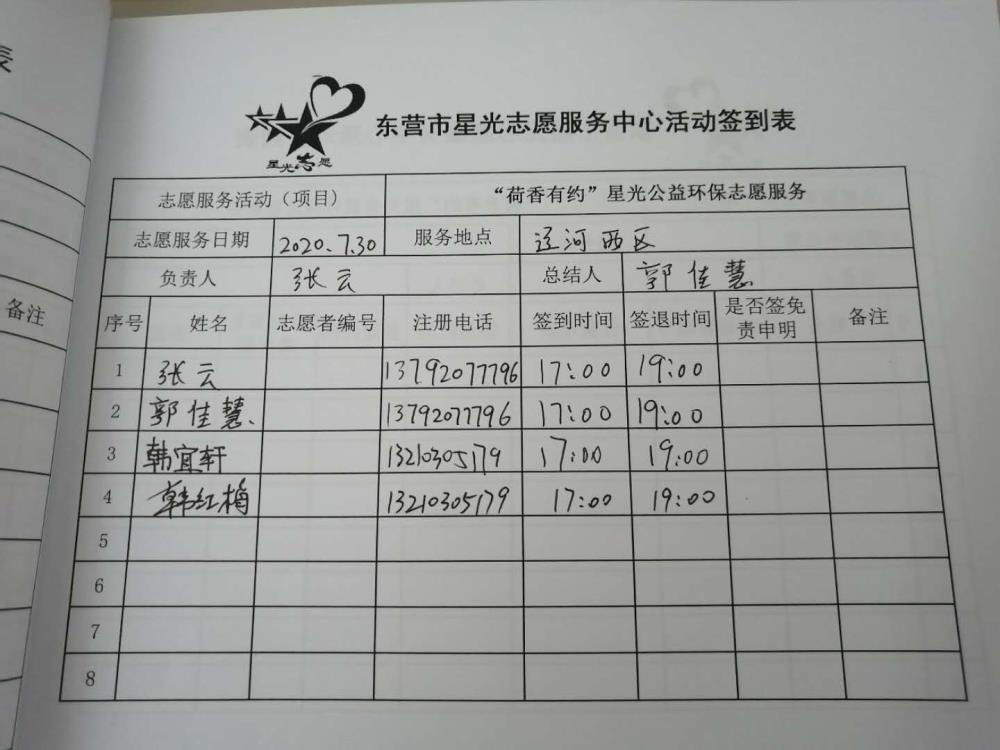 表
备注
星光志愿
东营市星光志愿服务中心活动签到表
志愿服务活动（项目） “荷香有约”星光公益环保志愿服务
志愿服务日期 2020.7.30 服务地点 辽河西区
负责人 张云 总结人 郭佳慧
序号 姓名 志愿者编号 注册电话 签到时间 签退时间 是否签免责申明 备注
1 张云 13792077796 17:00 19:00
2 郭佳慧、 13792077796 17:00 19:00
3 韩宜轩 13210305179 17:00 19:00
4 韩红梅 13210305179 17:00 19:00
5
6
7
8